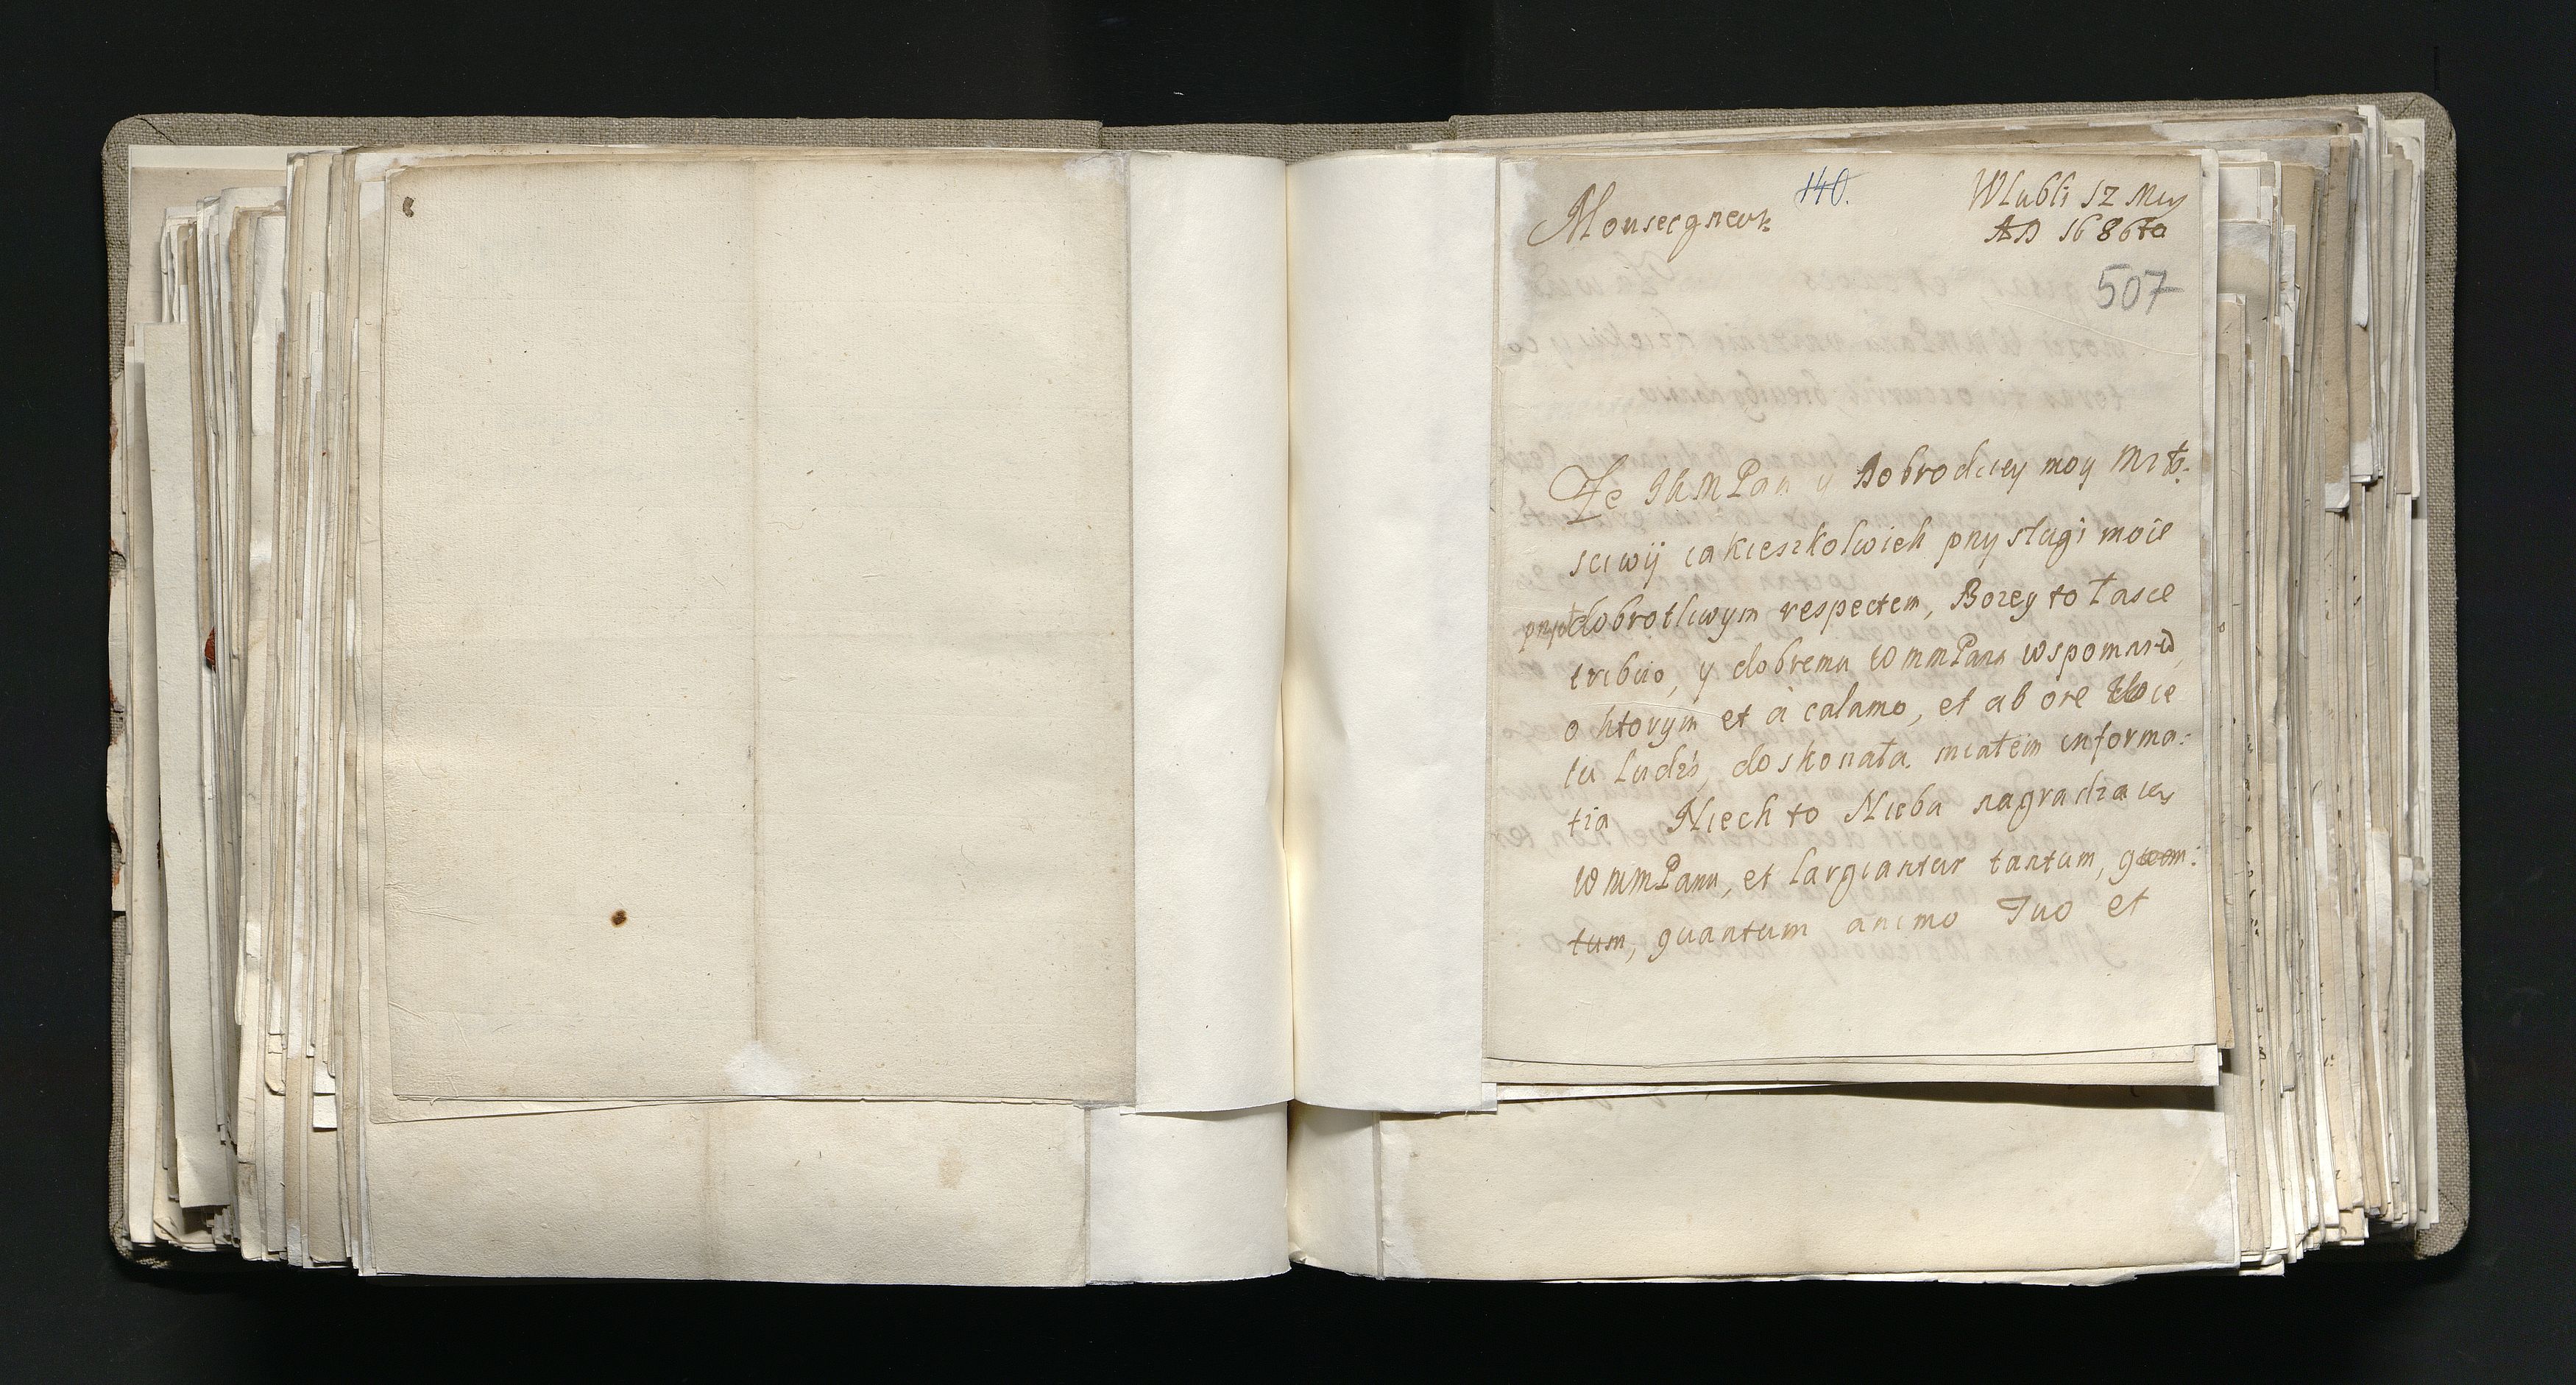 140.
Wlubli 12 May
AD 1686to
Monseigneur
507
Że IhMPan y Dobrodziey moy Miło:
sciwÿ iakieszkolwiek przysługi moie
przyioł dobrotliwym respectem, Bozey to łasce
tribuo, y dobremu WMMPanu wspomnie
o ktorym et à calamo, et ab ore
lu ludzi, doskonała miałem informa:
tia Niech to Nieba nagradzaią
WMMPanu, et largiantur tantum,
tum, quantum animo Tuo et